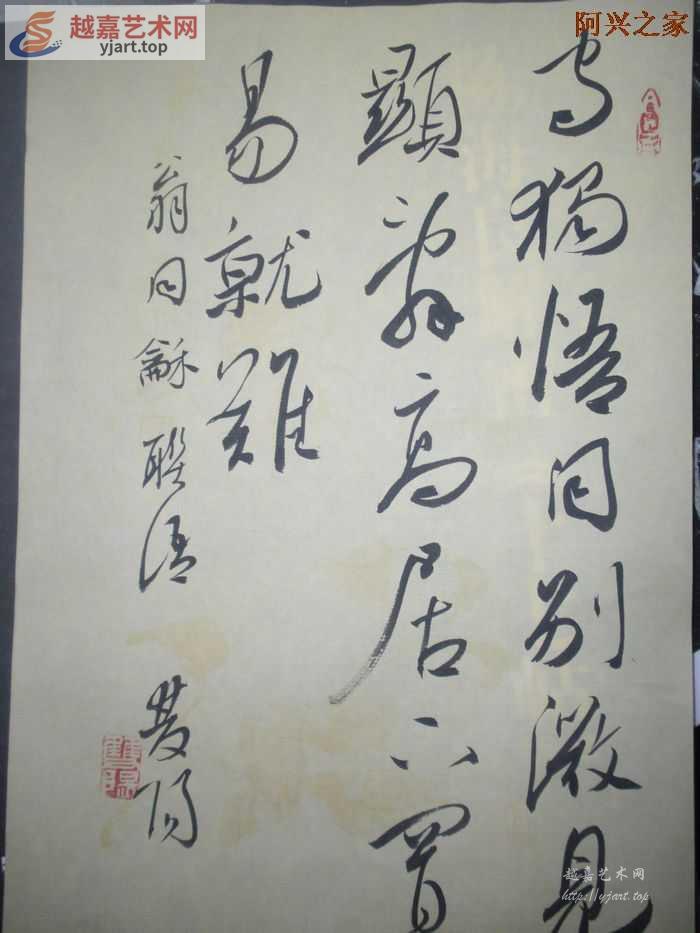 越嘉艺术网
yjart.top
阿兴之家
守獨悟同別微見
顯辭高居下置
易就難
翁同龢聯語 雙陽
雙陽
越嘉艺术网
http://yjart.top